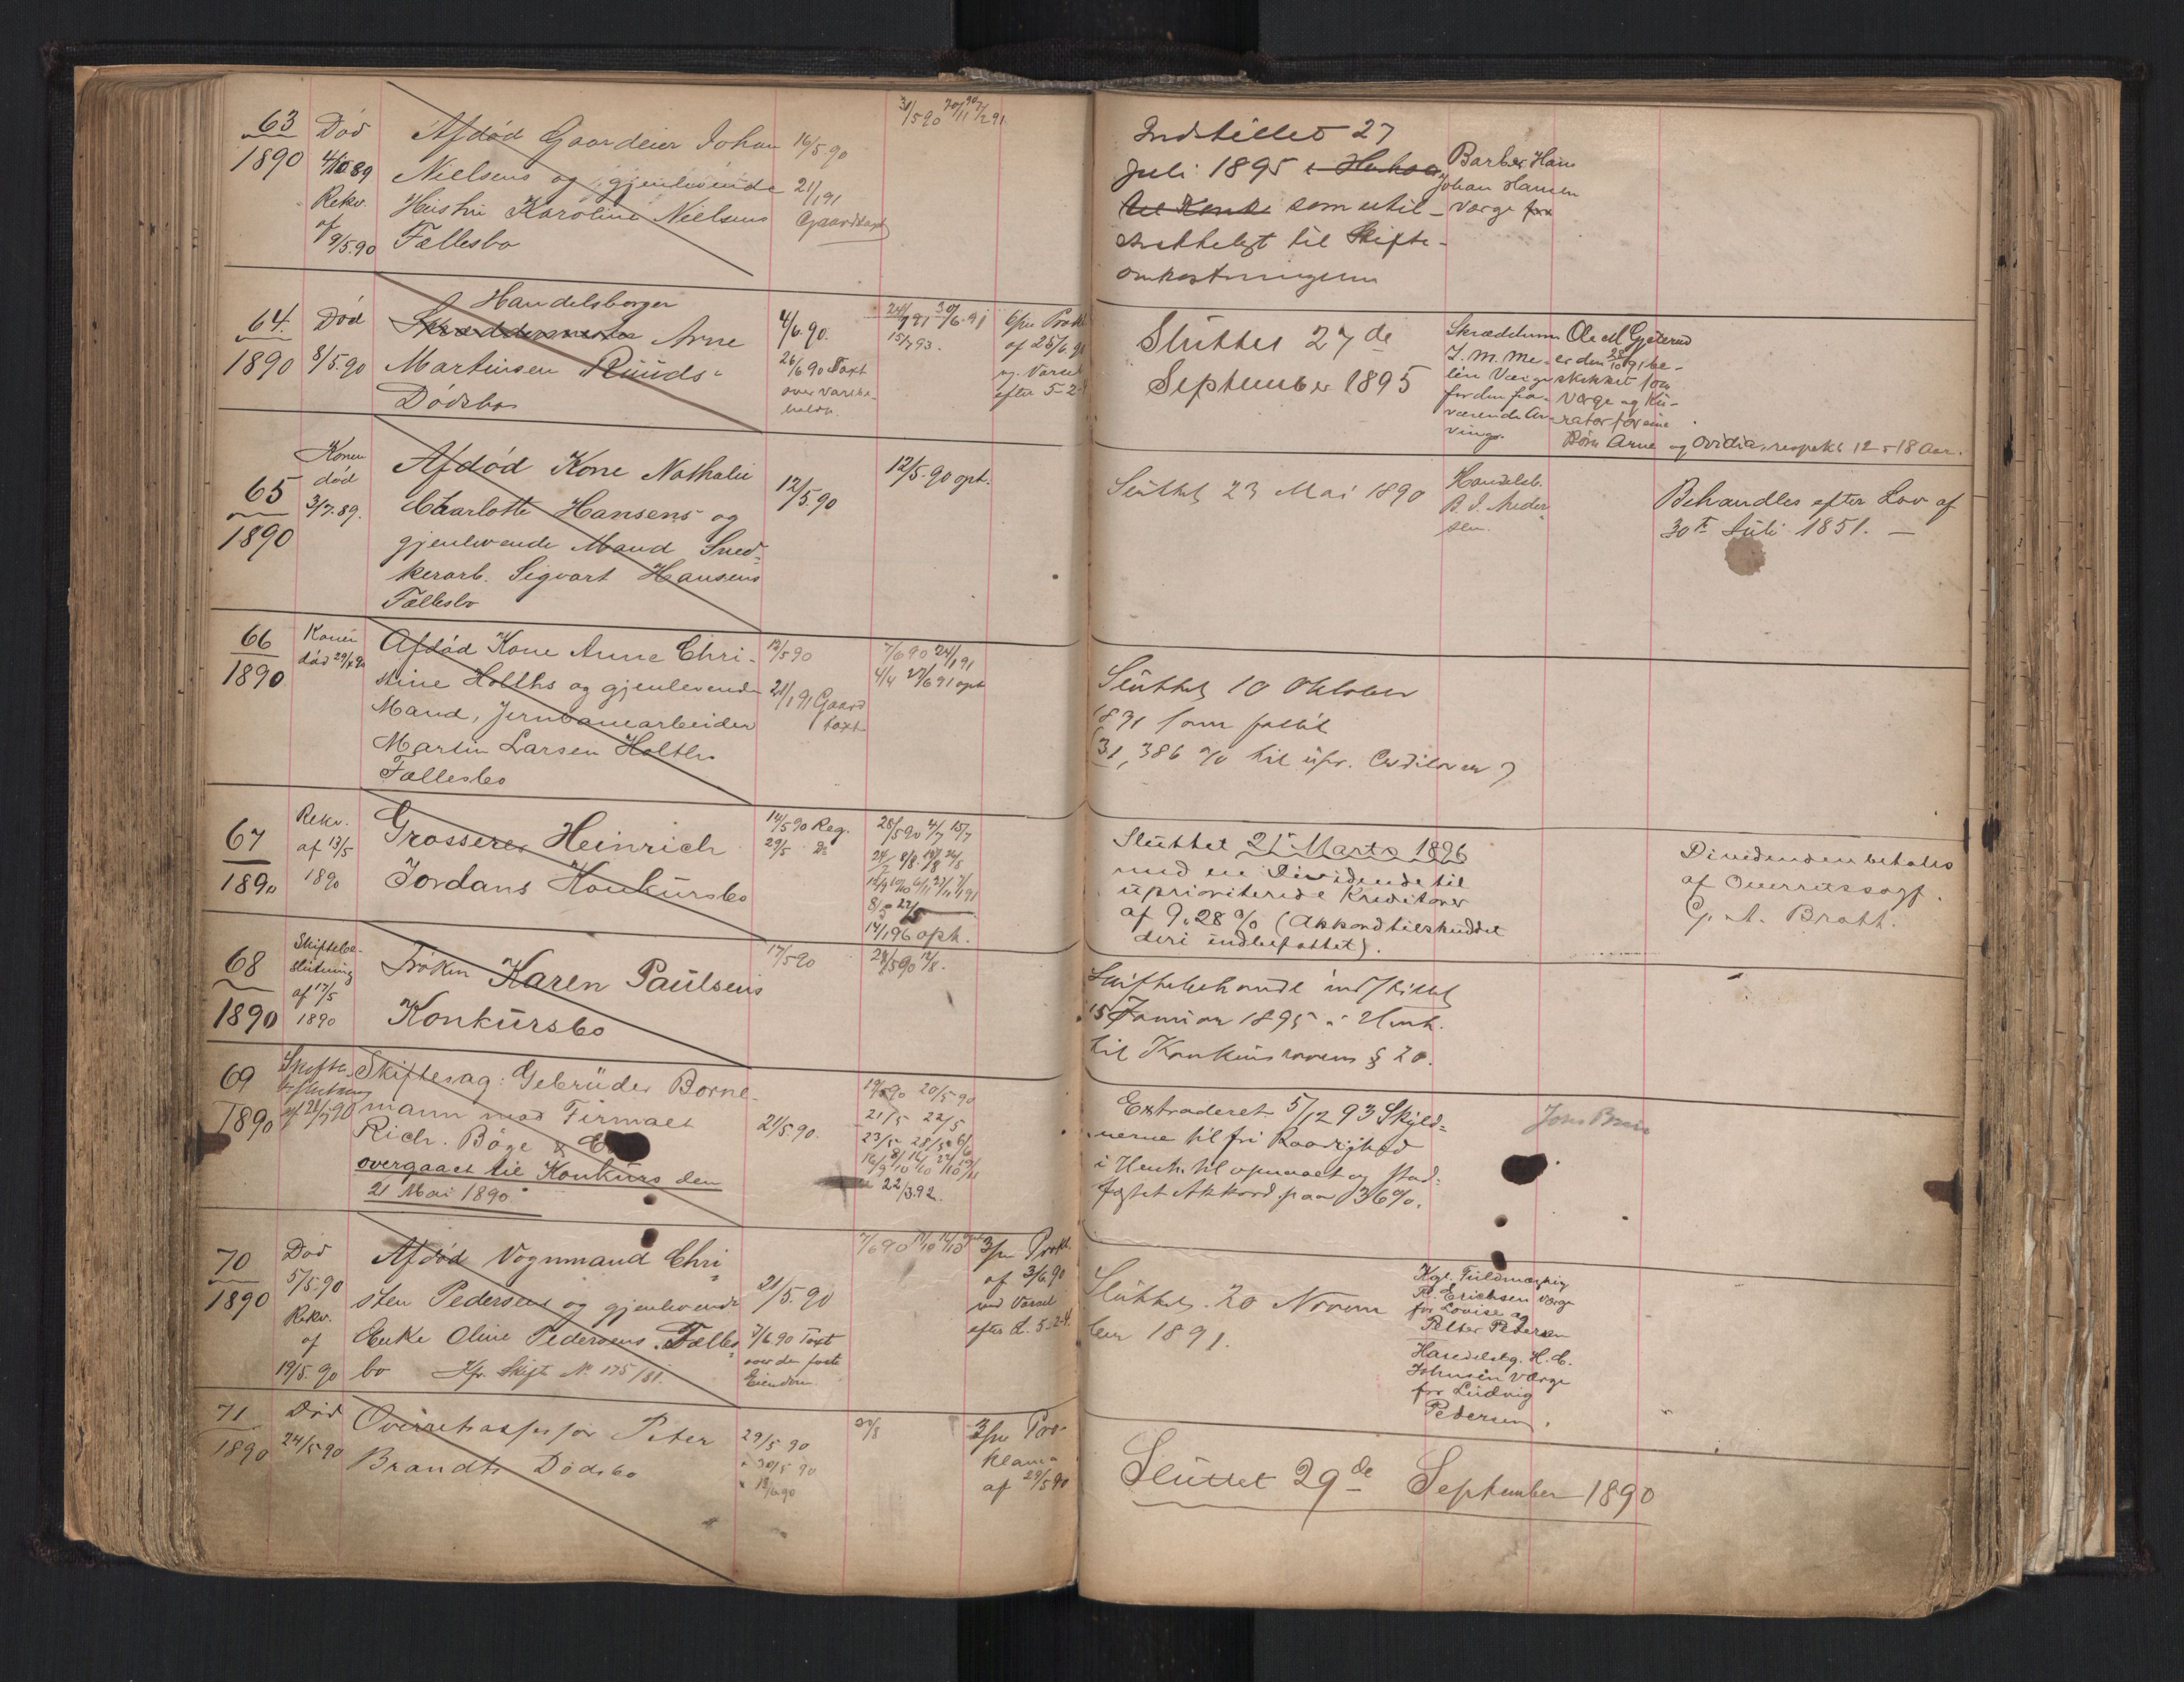 63
1890
Død
4/10 89
Rekv.
af
9/5.90
Afdød Gaardeier Johan
Nielsens og gjenlevende
Hustru Karoline Nielsens
Fællesbo
16/5 90
21/1 91
Gaardtaxt
31/5 90
Indstillet 27
Juli 1895
som util-
strekkeligt til Skifte-
omkostningerne
Barber Hans
Johan Hansen
Værge for
64.
1890
Død
8/5.90
Handelsborger
Skræddermester Arne
Martinsen Ruuds
Dødsbo
4/6.90.
26/6 90 Taxt
over Varebe-
holdn.
15/7 93.
6/m Prokl
af 25/6.90
m. Varsel
efter 5-2-4
Sluttet 27de
September 1895
Skræddum.
J. M. Me-
lin Værge
for den fra-
værende Ar-
ving.
Ole M Gjeterud
er den 28/10 91 be-
skikket som
Værge og Ku-
rator for sine
Børn Arne og Ovidia, respekt 12 - 18 Aar.
65
1890
Konen
død
3/7.89.
Afdød Kone Nathalie
Charlotte Hansens og
gjenlevende Mand Sned-
kerarb. Sigvart Hansens
Fællesbo
12/5.90
12/5.90 oph.
Sluttet 23 Mai 1890
Handelsb.
Behandles efter Lov af
30te Juli 1851. —
66
1890
Konen
død 29/4 90
Afdød Kone Anne Chri-
stine Holths og gjenlevende
Mand, Jernbanearbeider
Martin Larsen Holths
Fællesbo
12/5 90
21/1 91 Gaard
taxt
7/6 90 24/1 91
4/4 27/6 91 oph
Sluttet 10 Oktober
1891 som fallit
(31,386 % til upr. Creditorer)
67
1890
Rekv.
af 13/5
1890
Grosserer Heinrich
Jordans Konkursbo
14/5 90 Reg.
29/5 Do
28/5 90 4/7 15/7
14/1 96 oph.
Sluttet 21 Marts 1896
med en Dividende til
uprioriterede Kreditorer
af 9.28 % (Akkordtilskuddet
deri indbefattet).
Dividenden betales
af Overretssagf.
G. A. Bratt.
68
1890
Skiftebe-
slutning
af 17/5
1890
Frøken Karen Paulsens
Konkursbo
17/5 90
28/5 90 12/8.
Skiftebehandl indstillet
15 Januar 1895 i Henh.
til Konkurslovens § 20.
69
1890
Skifte-
beslutning
af 21/5 90
Skiftesag: Gebrüder Borne-
mann mod Firmaet
Rich. Böge &
overgaaet til Konkurs den
21 Mai 1890.
21/5.90.
19/5 90 20/5 90
21/5 22/5
22/3.92.
Extraderet 5/12 93 Skyld-
nerne til fri Raadighed
i Henh. til opnaaet og stad-
fæstet Akkord paa 36%.
70
1890
Død
5/5.90
Rekv.
af
19/5.90
Afdød Vognmand Chri-
sten Pedersens og gjenlevende
Enke Oline Pedersens Fælles-
bo Kfr. Skifte No 175/81.
21/5.90
7/6 90 Taxt
over den faste
Eiendom.
7/6 90
3/m Prokl.
af 3/6.90
med Varsel
efter L. 5-2-4.
Sluttet 20 Novem
ber 1891.
Kgl. Fuldmægtig
P. Erichsen Værge
for Lovise og
Petter Pedersen
Handelsbg. H. C.
Johnsen Værge
for Ludvig
Pedersen.
71
1890
Død
24/5.90
Overretsassessor Peter
Brandts Dødsbo
29/5 90
30/5 90
3/m Pro-
klama
af 29/5 90
Sluttet 29de September 1890